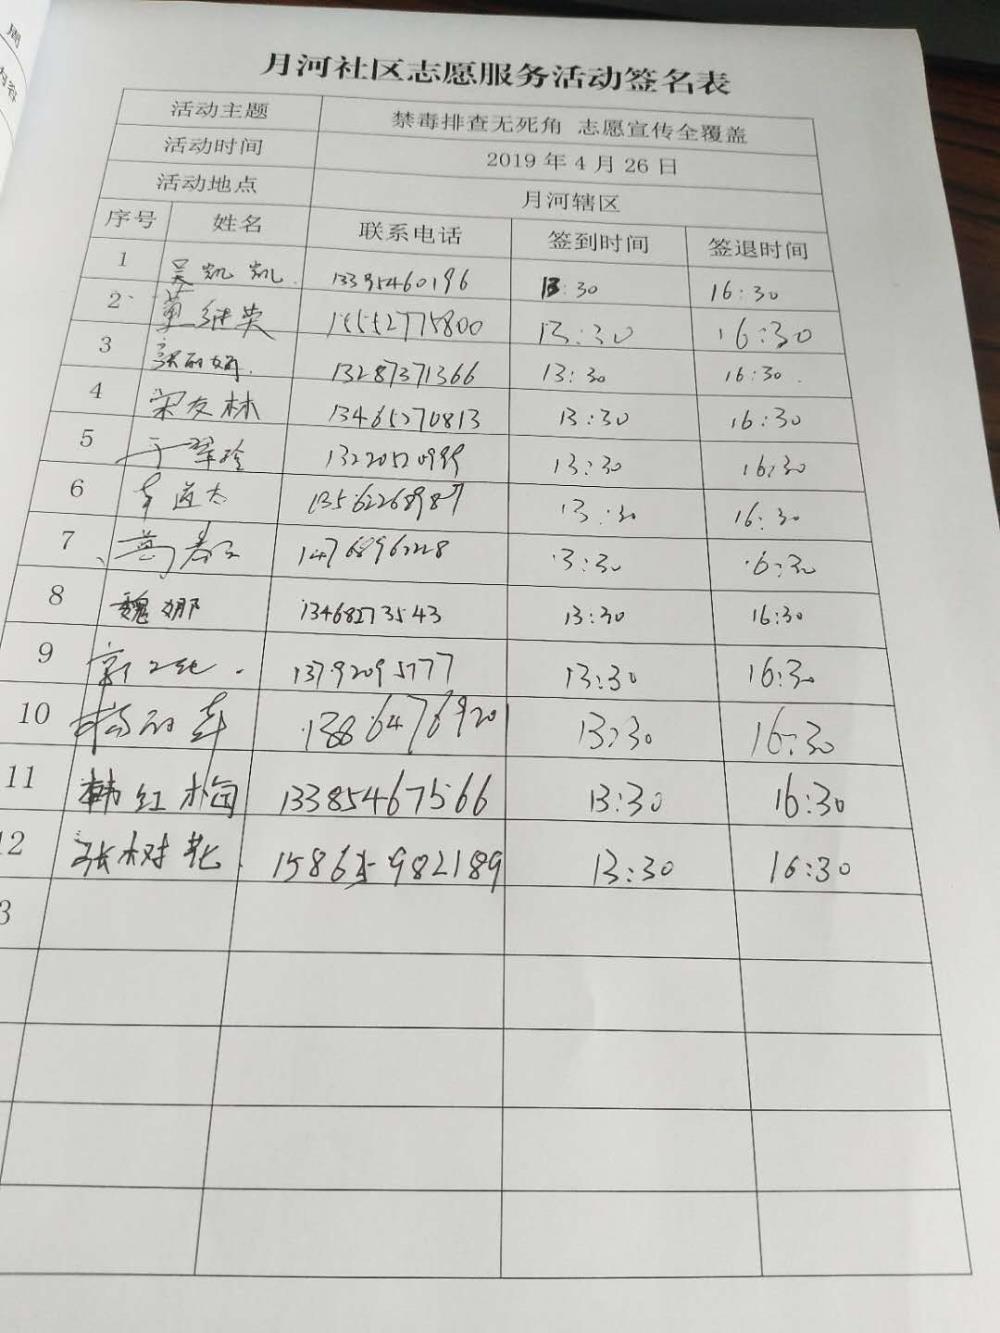 周
内容
月河社区志愿服务活动签名表
活动主题 禁毒排查无死角 志愿宣传全覆盖
活动时间 2019 年 4 月 26 日
活动地点 月河辖区
序号 姓名 联系电话 签到时间 签退时间
1 吴凯凯 13395460196 13:30 16:30
2 董继英 15552775800 13:30 16:30
3 13287371366 13:30 16:30
4 宋友林 13465270813 13:30 16:30
5 于翠玲 13:30 16:30
6 13562268987 13:30 16:30
7 13:30 16:30
8 魏娜 13468273543 13:30 16:30
9 13792095777 13:30 16:30
10 13864776920 13:30 16:30
11 韩红梅 13385467566 13:30 16:30
12 张树花 13:30 16:30
3